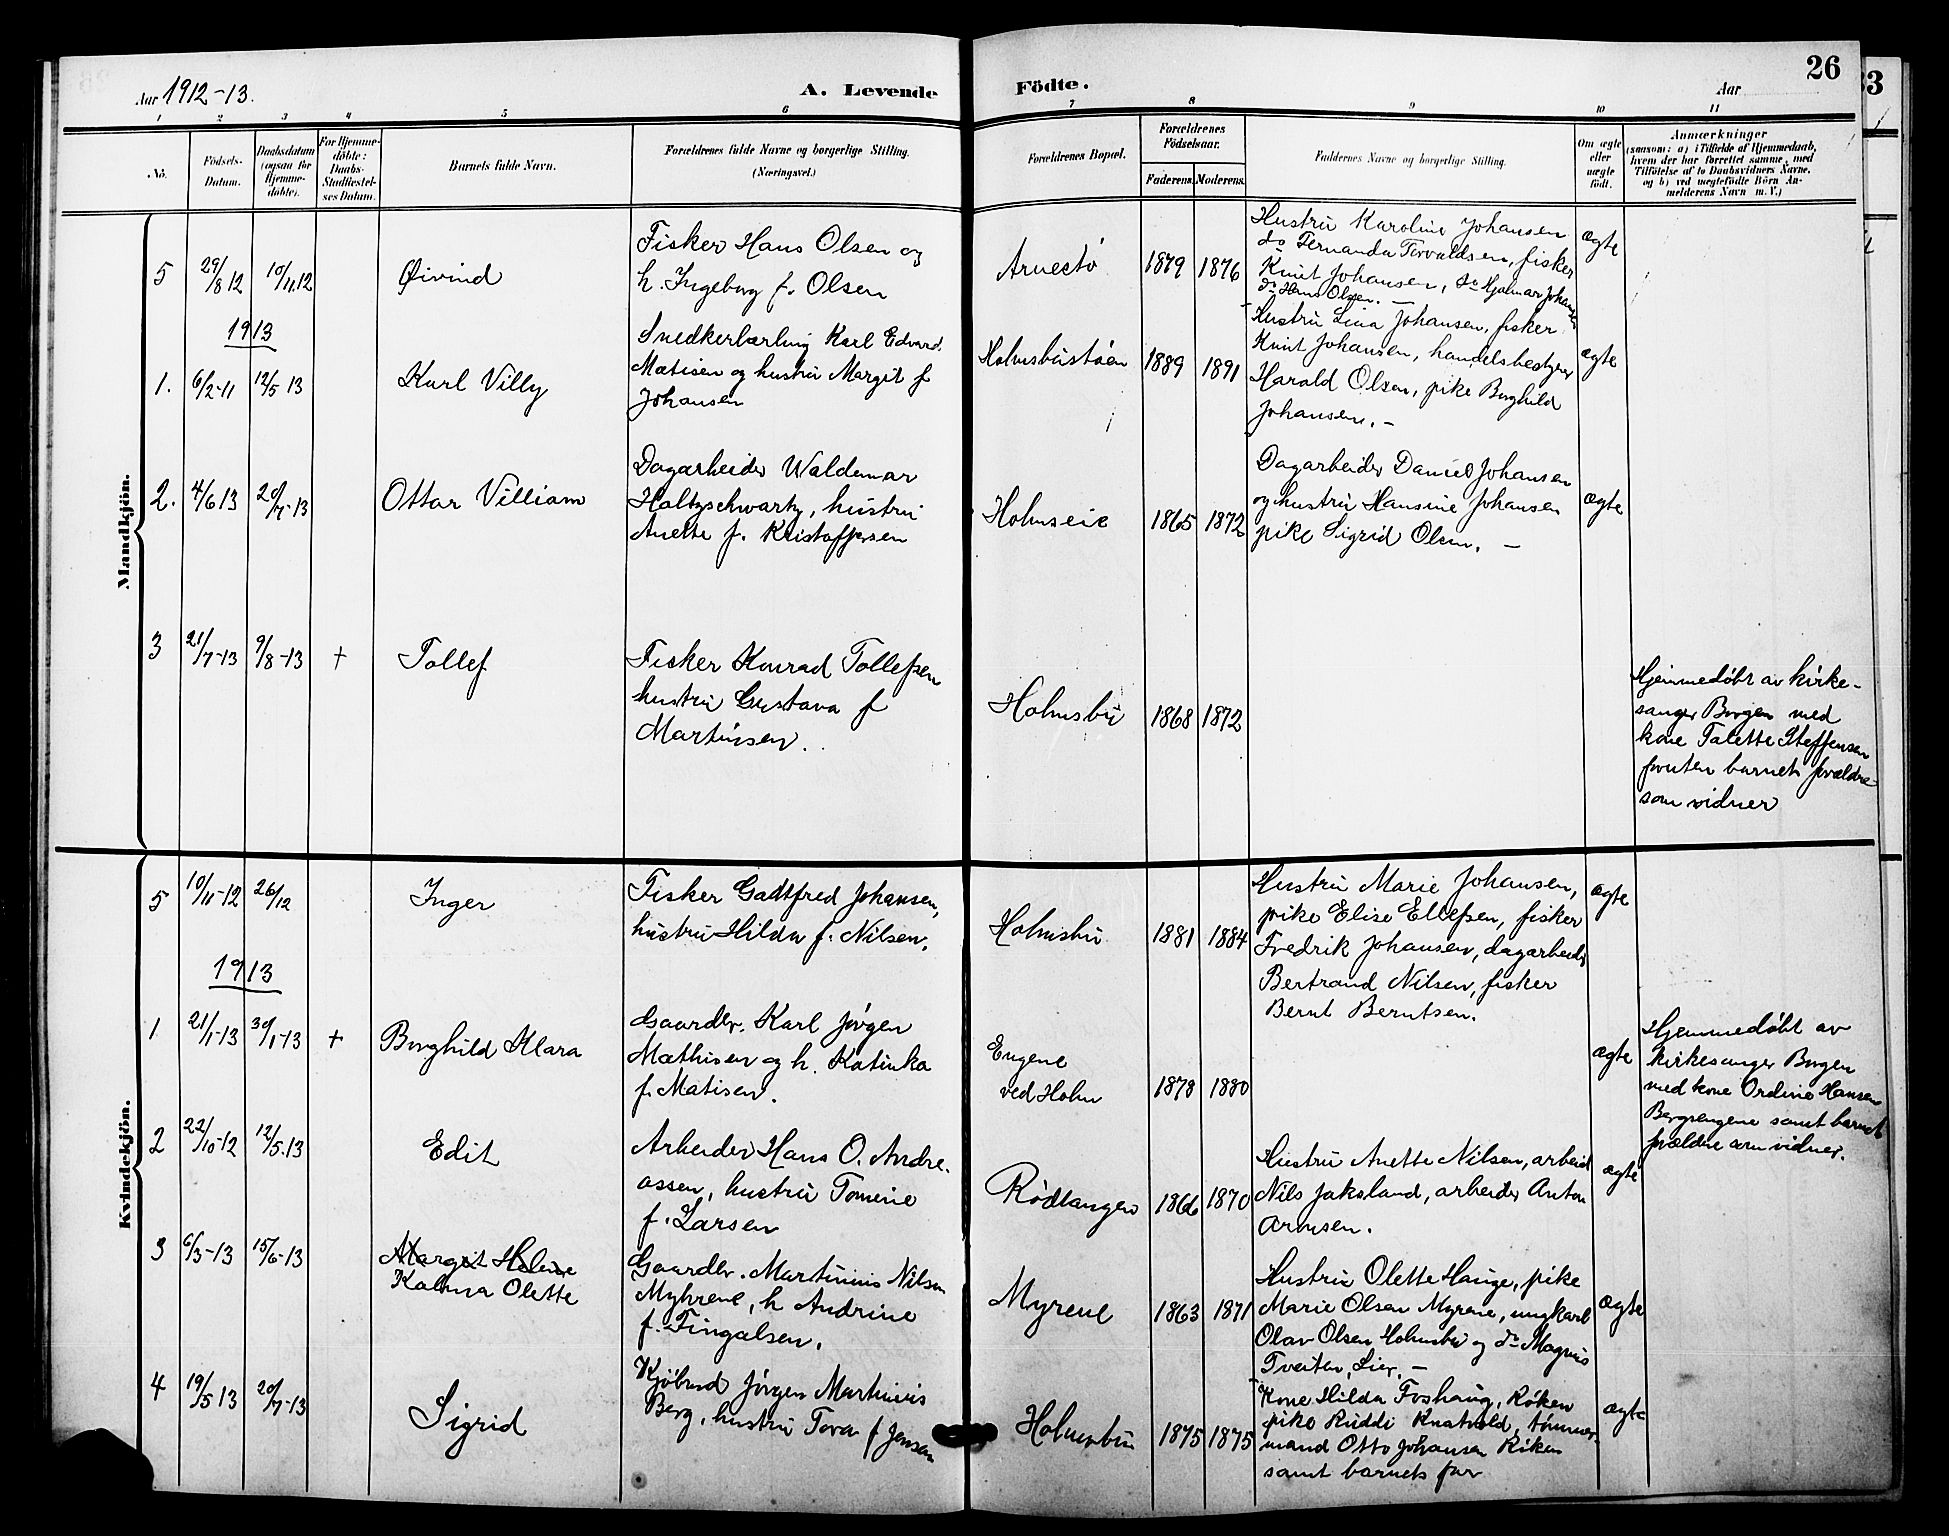 Aar 1912-13.
A. Levende
Födte.
Aar
26
1 2 3 4 5 6 7 8 9 10 11
No.
Födsels-
Datum.
Daabsdatum
(ogsaa for
Hjemme-
döbte).
For Hjemme-
döbte:
Daabs-
Stadfæstel-
ses Datum.
Barnets fulde Navn.
Forældrenes fulde Navne og borgerlige Stilling.
(Næringsvei.)
Forældrenes Bopæl.
Forældrenes
Födselsaar.
Faderens. Moderens.
Faddernes Navne og borgerlige Stilling.
Om ægte
eller
uægte
födt.
Anmærkninger
(saasom: a) i Tilfælde af Hjemmedaab,
hvem der har forrettet samme, med
Tilföielse af to Daabsvidners Navne,
og b) ved uægtefödte Börn An-
melderens Navn m. V.)
Mandkjön.
5 29/8 12 10/11.12 Øivind
Fisker Hans Olsen og
h. Ingeborg f. Olsen
Arnestö 1879 1876
Hustru Karoline Johansen
do Fernanda Torvaldsen, fisker
Knut Johansen, do Hjalmar Johansen
do Hans Olsen. –
ægte
1913
1. 6/2-11 12/5 13 Karl Villy
Snedkerlærling Karl Edvard
Matisen og hustru Margit f
Johansen
Holmsbustöen 1889 1891
Hustru Lina Johansen, fisker
Knut Johansen, handelsbestyrer
Harald Olsen, pike Borghild
Johansen. –
ægte
2. 4/6 13 20/7-13 Ottar Villiam
Dagarbeider Waldemar
Holtzschwartz, hustru
Anette f. Kristoffersen
Holmseie 1865 1872
Dagarbeider Daniel Johansen
og hustru Hansine Johansen
pike Sigrid Olsen. –
ægte
3 21/7-13 9/8-13 + Tollef
Fisker Konrad Tollefsen
hustru Gustava f
Martinsen.
Holmsbu 1868 1872
Hjemmedøbt av kirke-
sanger Borgen med
kone Talette Steffensen
foruten barnets forældre
som vidner
Kvindekjön.
5 10/11-12 26/12 Inger
Fisker Gadtfred Johansen,
hustru Hilda f. Nilsen.
Holmsbu 1881 1884
Hustru Marie Johansen,
pike Elise Ellefsen, fisker
Fredrik Johansen, dagarbeider
Bertrand Nilsen, fisker
Bernt Berntsen.
ægte
1913
1 21/1-13 30/1-13 + Borghild Klara
Gaardbr. Karl Jörgen
Mathisen og h. Katinka
f. Matisen.
Engene
ved Holm 1878 1880
ægte
Hjemmedøbt av
kirkesanger Borgen
med kone Ordine Hansen
Bergsengene samt barnets
forældre som vidner.
2 22/10-12 12/5.13 Edit
Arbeider Hans O. Andre-
assen, hustru Tomine
f. Larsen
Rödtangen 1866 1870
Hustru Anette Nilsen, arbeid
Nils Jaksland, arbeider Anton
Arnesen.
ægte
3 6/3-13 15/6-13 Margit Helene
Kalma Olette
Gaardbr. Martinius Nilsen
Myhrene, h Andrine
f. Fingalsen.
Myrene 1863 1871
Hustru Olette Hauge, pike
Marie Olsen Myrene, ungkarl
Olav Olsen Holmsbu og do Magnus
Tveiten, Lier. –
ægte
4 19/5 13 20/7-13 Sigrid
Kjöbmd Jörgen Martinius
Berg, hustru Tova f Jensen
Holmsbu 1875 1875
Kone Hilda Foshaug, Röken
pike Ruddi Knatvold, tömmer-
mand Otto Johansen Röken
samt barnets far
ægte